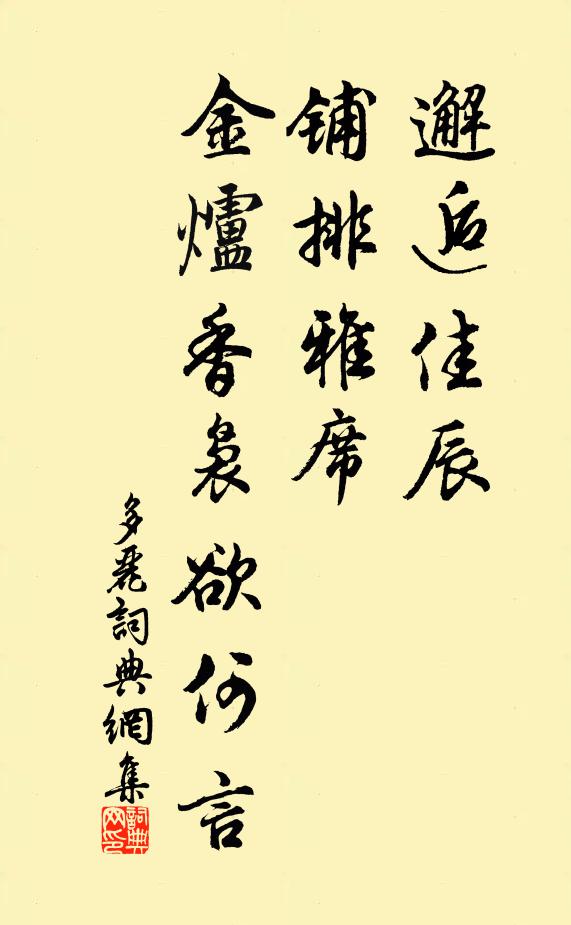 邂逅佳辰
铺排雅席
金爐香裊欲何言
多麗詞典網集
詞典
网印